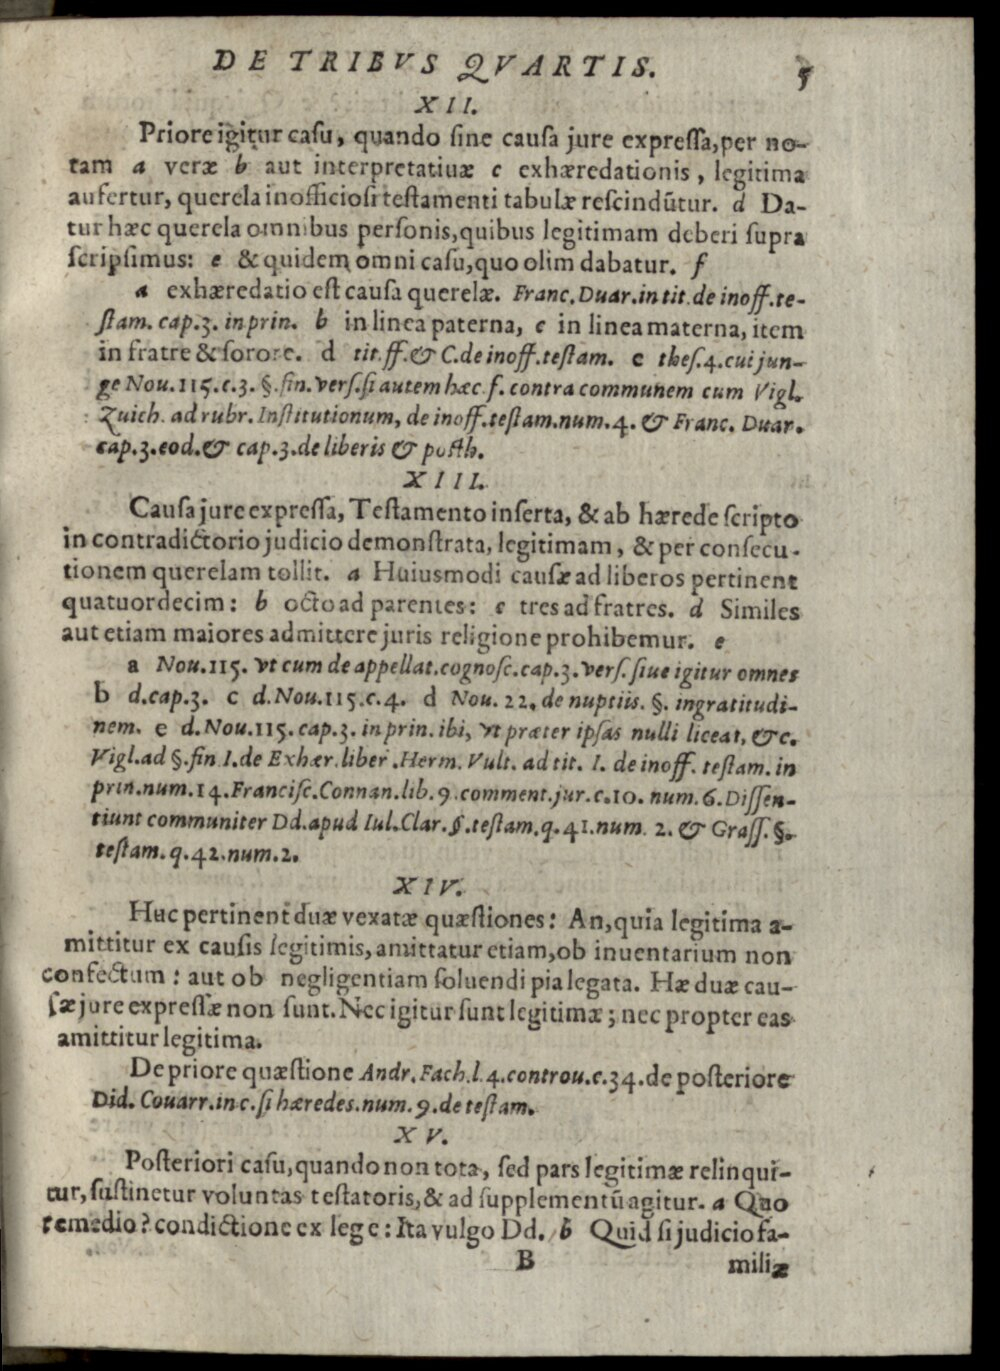 DE TRIBVS QVARTIS. 5
XII.
Priore igitur casu, quando sine causa jure expressa, per no-
tam a veræ b aut interpretatiuæ c exhæredationis, legitima
aufertur, querela inofficiosi testamenti tabulæ rescindũtur. d Da-
tur hæc querela omnibus personis, quibus legitimam deberi supra
scripsimus: e & quidem omni casu, quo olim dabatur. f
a exhæredatio est causa querelæ. Franc. Duar. in tit. de inoff. te-
stam. cap. 3. in prin. b in linea paterna, c in linea materna, item
in fratre & sorore. d tit. ff. & C. de inoff. testam. e thes. 4. cui jun-
ge Nou. 115. c. 3. §. fin. vers. si autem hæc f. contra communem cum Vigl.
Zuich. ad rubr. Institutionum, de inoff. testam. num. 4. & Franc. Duar.
cap. 3. eod. & cap. 3. de liberis & posth.
XIII.
Causa jure expressa, Testamento inserta, & ab hærede scripto
in contradictorio judicio demonstrata, legitimam, & per consecu-
tionem querelam tollit. a Huiusmodi causæ ad liberos pertinent
quatuordecim: b octo ad parentes: c tres ad fratres. d Similes
aut etiam maiores admittere juris religione prohibemur. e
a Nou. 115. vt cum de appellat. cognosc. cap. 3. vers. siue igitur omnes
b d. cap. 3. c d. Nou. 115. c. 4. d Nou. 22. de nuptiis. §. ingratitudi-
nem. e d. Nou. 115. cap. 3. in prin. ibi, vt præter ipsas nulli liceat, &c.
Vigl. ad §. fin. I. de Exhær. liber. Herm. Vult. ad tit. I. de inoff. testam. in
prin. num. 14. Francisc. Connan. lib. 9. comment. jur. c. 10. num. 6. Dissen-
tiunt communiter Dd. apud Iul. Clar. §. testam. q. 41. num. 2. & Grass. §.
testam. q. 42. num. 2.
XIV.
Huc pertinent duæ vexatæ quæstiones: An, quia legitima a-
mittitur ex causis legitimis, amittatur etiam, ob inuentarium non
confectum: aut ob negligentiam soluendi pia legata. Hæ duæ cau-
sæ jure expressæ non sunt. Nec igitur sunt legitimæ; nec propter eas
amittitur legitima.
De priore quæstione Andr. Fach. l. 4. controu. c. 34. de posteriore
Did. Couarr. in c. si hæredes. num. 9. de testam.
XV.
Posteriori casu, quando non tota, sed pars legitimæ relinqui-
tur, sustinetur voluntas testatoris, & ad supplementũ agitur. a Quo
remedio? condictione ex lege: Ita vulgo Dd. b Quid si judicio fa-
B miliæ